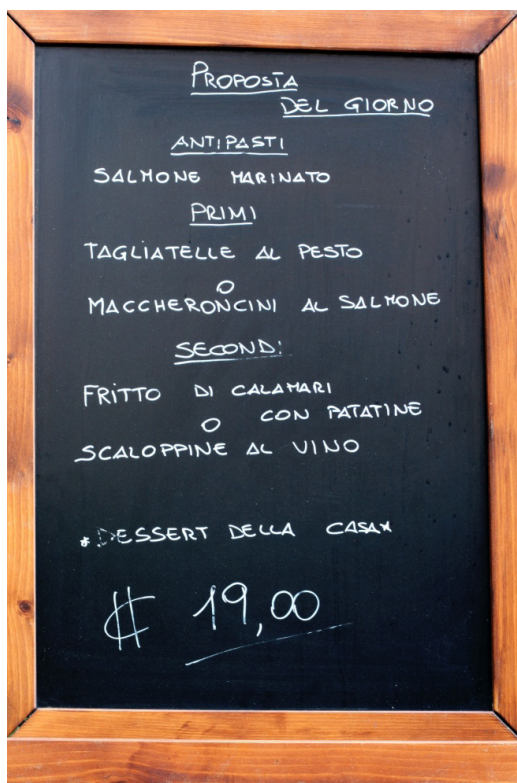 PROPOSTA
DEL GIORNO
ANTIPASTI
SALMONE MARINATO
PRIMI
TAGLIATELLE AL PESTO
O
MACCHERONCINI AL SALMONE
SECONDI
FRITTO DI CALAMARI
O CON PATATINE
SCALOPPINE AL VINO
*DESSERT DELLA CASA*
€ 19,00